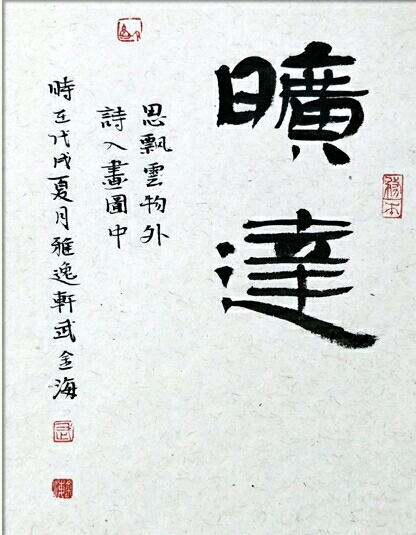 曠達
思飄雲物外
詩入畫圖中
時在戊戌夏月雅逸軒武金海